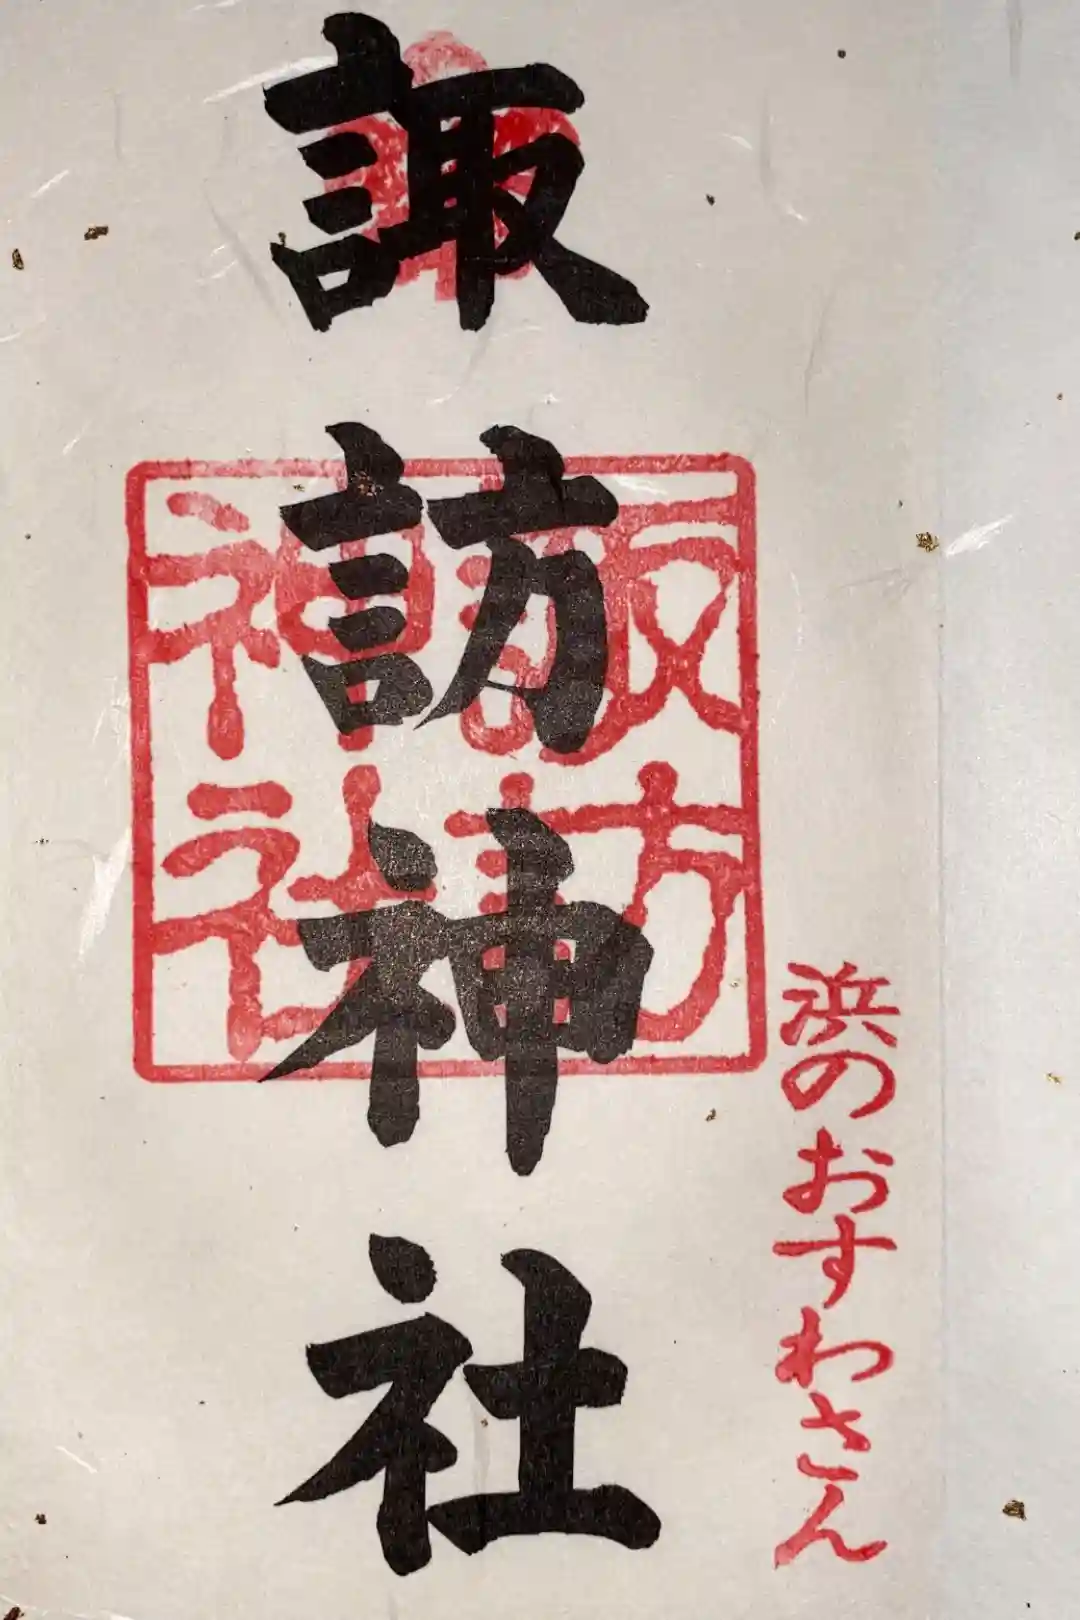 浜のおすわさん
諏訪神社
諏訪
神社